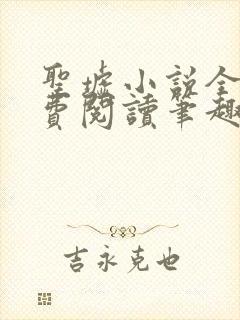 聖墟小説全
費閱讀筆趣
吉永克也